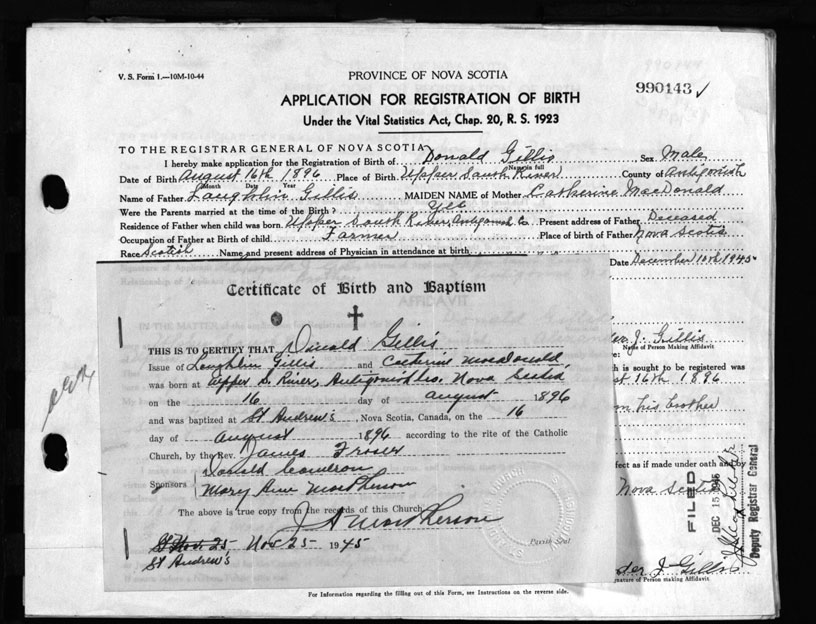 V. S. Form 1.—10M-10-44
PROVINCE OF NOVA SCOTIA
990143 ✓
APPLICATION FOR REGISTRATION OF BIRTH
Under the Vital Statistics Act, Chap. 20, R. S. 1923
TO THE REGISTRAR GENERAL OF NOVA SCOTIA
I hereby make application for the Registration of Birth of Donald Gillis Sex Male
Name in full
Date of Birth August 16th 1896 Place of Birth Upper South River County of Antigonish
Month Date Year
Name of Father Laughlin Gillis MAIDEN NAME of Mother Catherine MacDonald
Were the Parents married at the time of the Birth? Yes
Residence of Father when child was born Upper South River Antigonish Co. Present address of Father Deceased
Occupation of Father at Birth of child Farmer Place of birth of Father Nova Scotia
Race Scotch Name and present address of Physician in attendance at birth
Date December 10th 1945
Certificate of Birth and Baptism
THIS IS TO CERTIFY THAT Donald Gillis
Issue of Loughlin Gillis and Catherine MacDonald
was born at Upper S. River, Antigonish Co. Nova Scotia
on the 16 day of August 1896
and was baptized at St Andrew's, Nova Scotia, Canada, on the 16
day of August 1896 according to the rite of the Catholic
Church, by the Rev. James Fraser
Sponsors Donald Cameron
Mary Ann MacPherson
The above is true copy from the records of this Church.
J A MacPherson
Nov 25 1945
St Andrew's
J. Gillis
Name of Person Making Affidavit
h is sought to be registered was
st 16th 1896
m his brother
fect as if made under oath and by
Nova Scotia
FILED
DEC 15 1945
Deputy Registrar General
der J. Gillis
Signature of Person making Affidavit
For Information regarding the filling out of this Form, see Instructions on the reverse side.